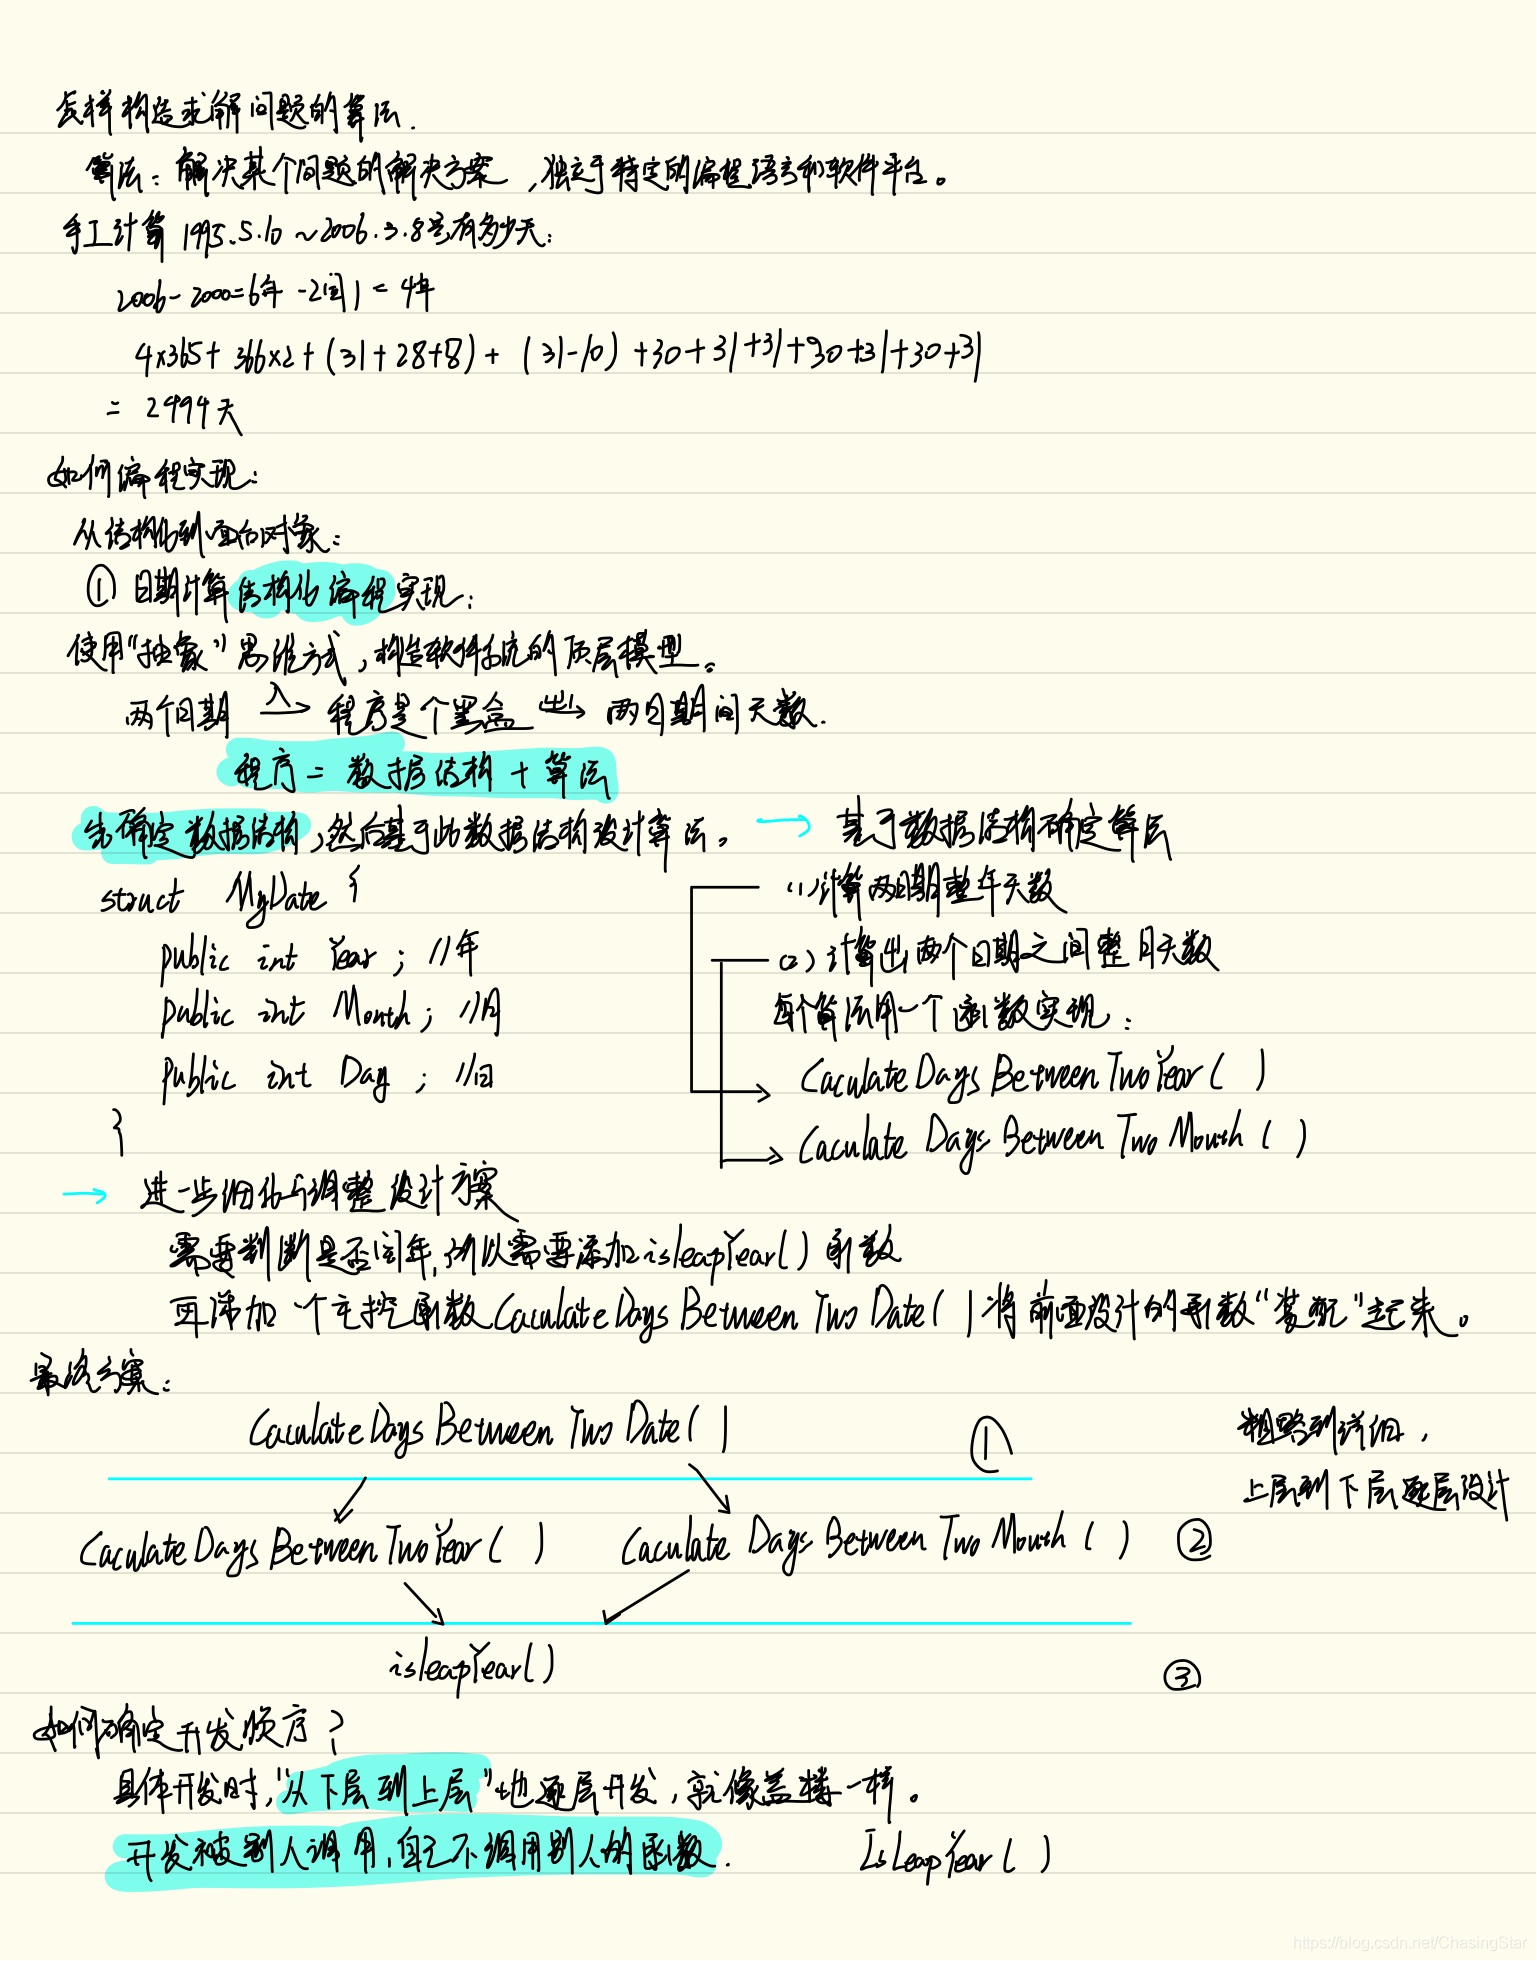 怎样构造求解问题的算法.
算法：解决某个问题的解决方案，独立于特定的编程语言和软件平台。
手工计算 1995.5.10 ~ 2006.3.8号有多少天:
2006-2000=6年 -2闰 = 4年
4×365+ 366×2 + (31+28+8) + (31-10) +30+31+31+30+31+30+31
= 2494天
如何编程实现:
从结构化到面向对象:
① 日期计算结构化编程实现:
使用"抽象"思维方式，构造软件系统的顶层模型。
两个日期 入→ 程序是个黑盒 出→ 两日期间天数.
程序 = 数据结构 + 算法
先确定数据结构，然后基于此数据结构设计算法。 → 基于数据结构确定算法
struct MyDate {
public int Year; //年
public int Month; //月
public int Day; //日
}
(1)计算两日期整年天数
(2)计算出两个日期之间整月天数
每个算法用一个函数实现:
CaculateDaysBetweenTwoYear( )
CaculateDaysBetweenTwoMouth( )
→ 进一步细化与调整设计方案
需要判断是否闰年,所以需要添加isleapYear()函数
再添加一个主控函数CaculateDaysBetweenTwoDate( )将前面设计的函数"装配"起来。
最终方案:
CaculateDaysBetweenTwoDate( ) ①
粗略到详细，
上层到下层逐层设计
CaculateDaysBetweenTwoYear( ) CaculateDaysBetweenTwoMouth( ) ②
isleapYear() ③
如何确定开发顺序?
具体开发时,"从下层到上层"地逐层开发，就像盖楼一样。
开发被别人调用,自己不调用别人的函数. IsLeapYear( )
https://blog.csdn.net/ChasingStar